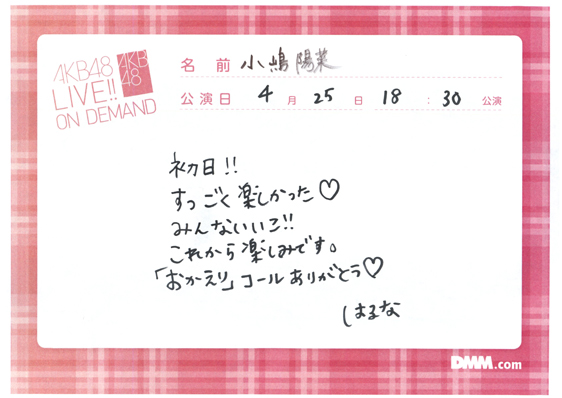 AKB48
LIVE!!
ON DEMAND
AKB
48
名前 小嶋陽菜
公演日 4月25日 18:30公演
初日!!
すっごく楽しかった♡
みんないいこ!!
これから楽しみです。
「おかえり」コールありがとう♡
はるな
DMM.com